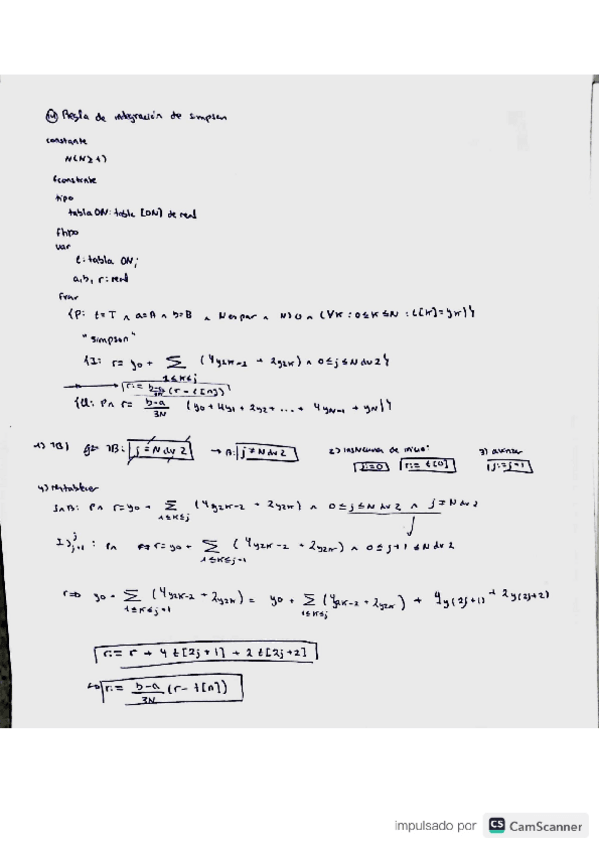 Regla de integración de simpson
constante
N(N≥1)
fconstante
tipo
tabla ON: tabla [ON] de real
ftipo
var
t: tabla ON;
a, b, r: real
fvar
{P: t=T ∧ a=A ∧ b=B ∧ N es par ∧ N>0 ∧ (∀K: 0≤K≤N : t[K]=yK)}
"simpson"
{I: r= y0 + Σ (4y2K-1 + 2y2K) ∧ 0≤j≤N div 2}
1≤K≤j
r:= b-a/3N (r - t[n])
{Q: P ∧ r= b-a/3N (y0 + 4y1 + 2y2 + ... + 4yN-1 + yN)}
1) ¬B) ¬B: j=N div 2 → B: j≠N div 2 2) instrucciones de inicio: j:=0 r:= t[0] 3) avanzar j:=j+1
4) restablecer
I∧B: P∧ r=y0+ Σ (4y2K-2 + 2y2K) ∧ 0≤j≤N div 2 ∧ j≠N div 2
1≤K≤j
I)j j+1 : P∧ r=y0+ Σ (4y2K-2 + 2y2K) ∧ 0≤j+1≤N div 2
1≤K≤j+1
r=> y0 + Σ (4y2K-2 + 2y2K) = y0 + Σ (4y2K-2 + 2y2K) + 4y(2j+1) + 2y(2j+2)
1≤K≤j+1 1≤K≤j
r:= r + 4t[2j+1] + 2t[2j+2]
r:= b-a/3N (r - t[n])
impulsado por CS CamScanner